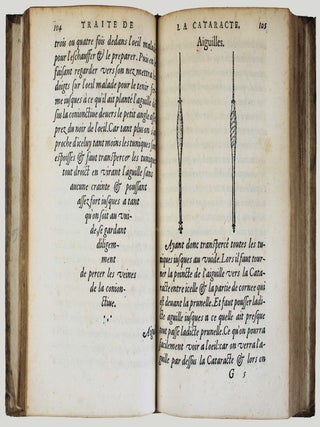 104 TRAITE DE
trois ou quatre fois dedans l'oeil malade
pour l'eschauffer & le preparer. Puis en
faisant regarder vers son nez mettra les
doigts sur l'oeil malade pour le tenir fer-
me iusques a ce qu'il ait planté l'aiguille des-
sus la conionctiue deuers le petit angle as-
prez du noir de l'oeil. Car tant plus on ap-
proche d'iceluy tant moins les tuniques sont
espoisses & faut transpercer les tuniques
tout droict en virant l'aiguille sans
aucune crainte & poussant
assez fort iusques a tant
qu'on soit au vui-
de se gardant
diligem-
ment
de percer les veines
de la conion-
ctiue.
Aigui
LA CATARACTE. 105
Aiguilles.
Ayant donc transpercé toutes les tu-
niques iusques au vuide. Lors il faut tour-
ner la poincte de l'aiguille vers la Cata-
racte entre icelle & la partie de cornee qui
est deuant la prunelle. Et faut pousser ladi-
cte aiguille iusques a ce quelle ait presque
tout passé ladicte prunelle. Ce qu'on pourra
facilement voir a l'oeil: car on verra l'ai-
guille par dessus la Cataracte & lors on
G 5